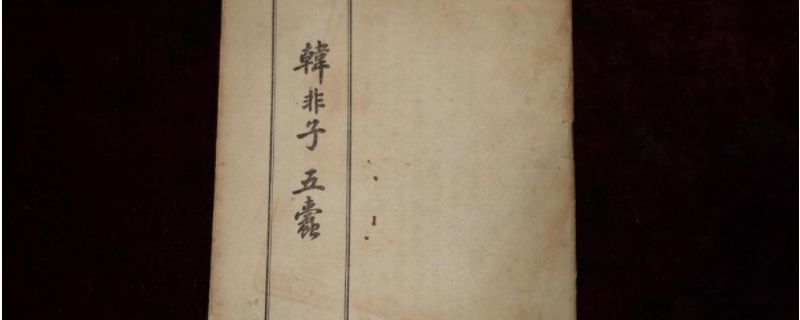 韓非子 五蠹